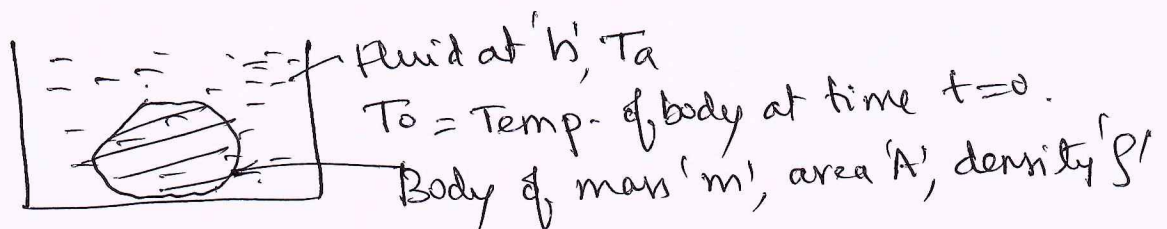 Fluid at 'h', Ta
To = Temp. of body at time t=0.
Body of mass 'm', area 'A', density 'ρ'